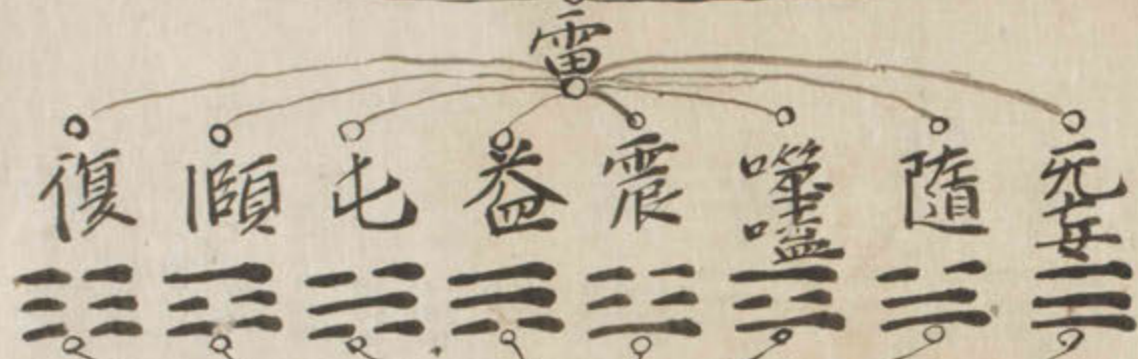 雷
復 頤 屯 益 震 噬嗑 隨 无妄